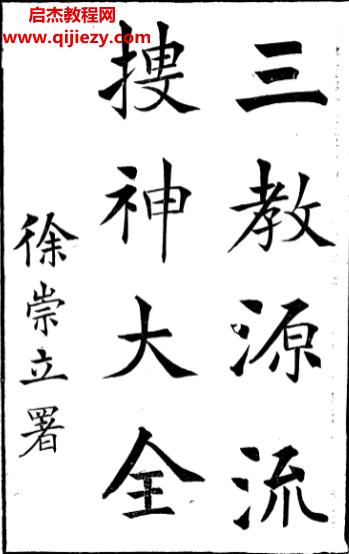 启杰教程网
www.qijiezy.com
三教源流
搜神大全
徐崇立署